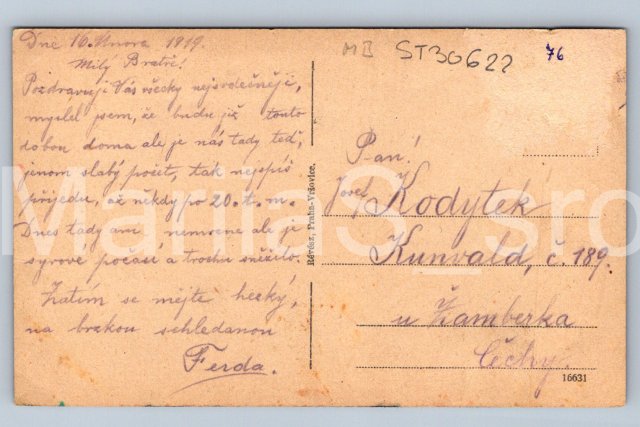 Dne 16. února 1919.
Milý Bratře!
Pozdravuji Vás všecky nejsrdečněji,
myslel jsem, že budu již touto
dobou doma ale je nás tady teď,
jenom slabý počet, tak nejspíš
přijedu, až někdy po 20. t. m.
Dnes tady ani nemrzne ale je
syrové počasí a trochu sněžilo.
Zatím se mějte hezky,
na brzkou schledanou
Ferda.
MB ST30622 76
Révész, Praha-Vršovice.
Pan!
Josef Kodytek
Kunvald, č. 189.
u Žamberka
Čechy.
16631